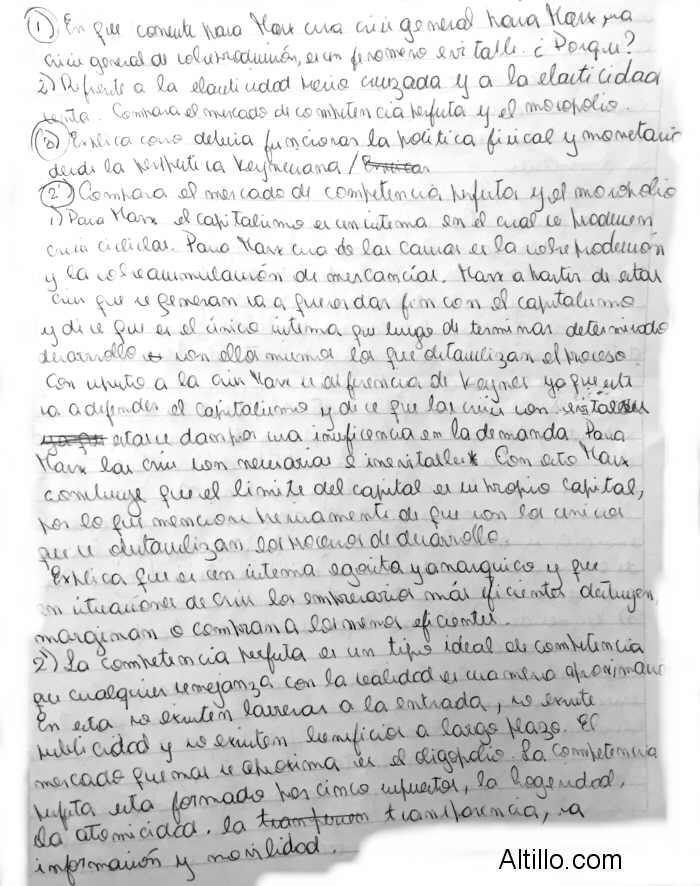 1) En que consiste para Marx una crisis general para Marx una
crisis general de sobreproducción, es un fenomeno evitable. ¿Porque?
2) Refierete a la elasticidad precio cruzada y a la elasticidad
renta. Compara el mercado de competencia perfecta y el monopolio.
3) Explica como deberia funcionar la politica fiscal y monetaria
desde la perspectiva keynesiana/
2) Compara el mercado de competencia perfecta y el monopolio
1) Para Marx el capitalismo es un sistema en el cual se producen
crisis ciclicas. Para Marx una de las causas es la sobreproducción
y la sobreacumulación de mercancias. Marx a partir de estas
crisis que se generan va a querer dar fin con el capitalismo
y dice que es el único sistema que luego de terminar determinado
desarrollo son ellos mismos los que obstaculizan el proceso.
Con respecto a la crisis Marx se diferencia de Keynes ya que este
va a defender el capitalismo y dice que las crisis son evitables
estas se dan por una insuficencia en la demanda. Para
Marx las crisis son necesarias e inevitables. Con esto Marx
concluye que el limite del capital es su propio capital,
por lo que menciona previamente de que son los unicos
que se obstaculizan los procesos de desarrollo.
Explica que es un sistema egoista y anarquico y que
en situaciones de crisis los empresarios más eficientes destruyen,
marginan o compran a los menos eficientes.
2) La competencia perfecta es un tipo ideal de competencia
que cualquier semejanza con la realidad es una mera aproximación
En esta no existen barreras a la entrada, no existe
publicidad y no existen beneficios a largo plazo. El
mercado que mas se aproxima es el oligopolio. La competencia
perfecta esta formado por cinco supuestos, la
la atomicidad, la transparencia, la
información y movilidad.
Altillo.com